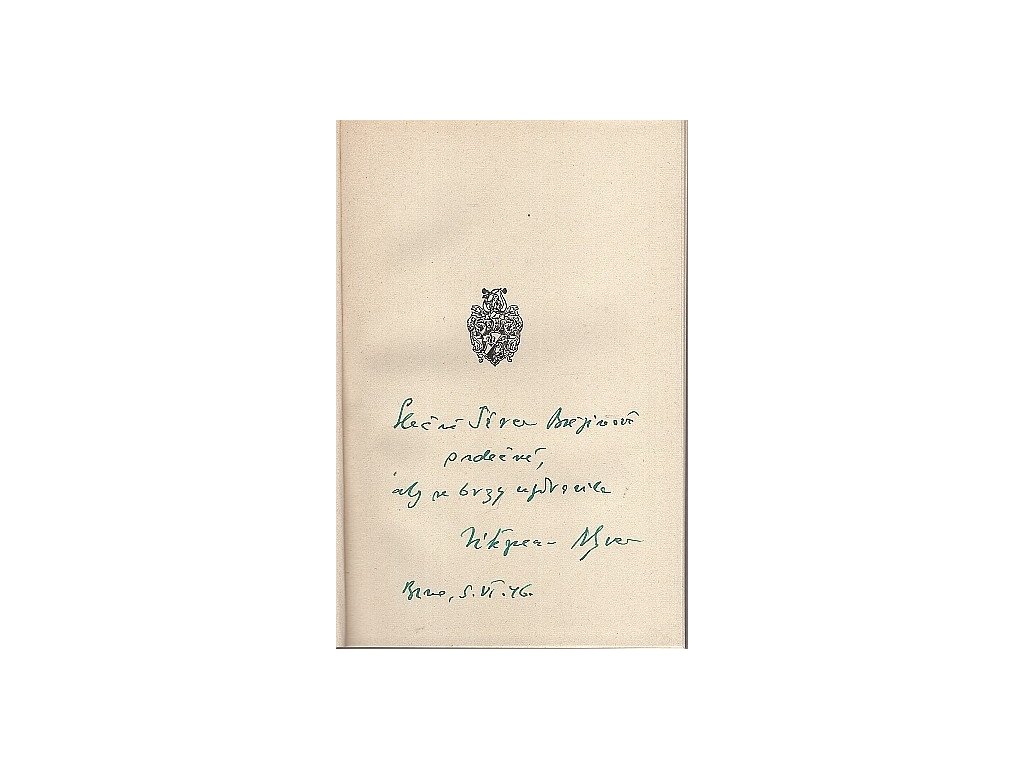 Slečně Březinové
srdečně,
aby se brzy uzdravila
Vítězslav Nezval
Brno, 5. VI. 46.